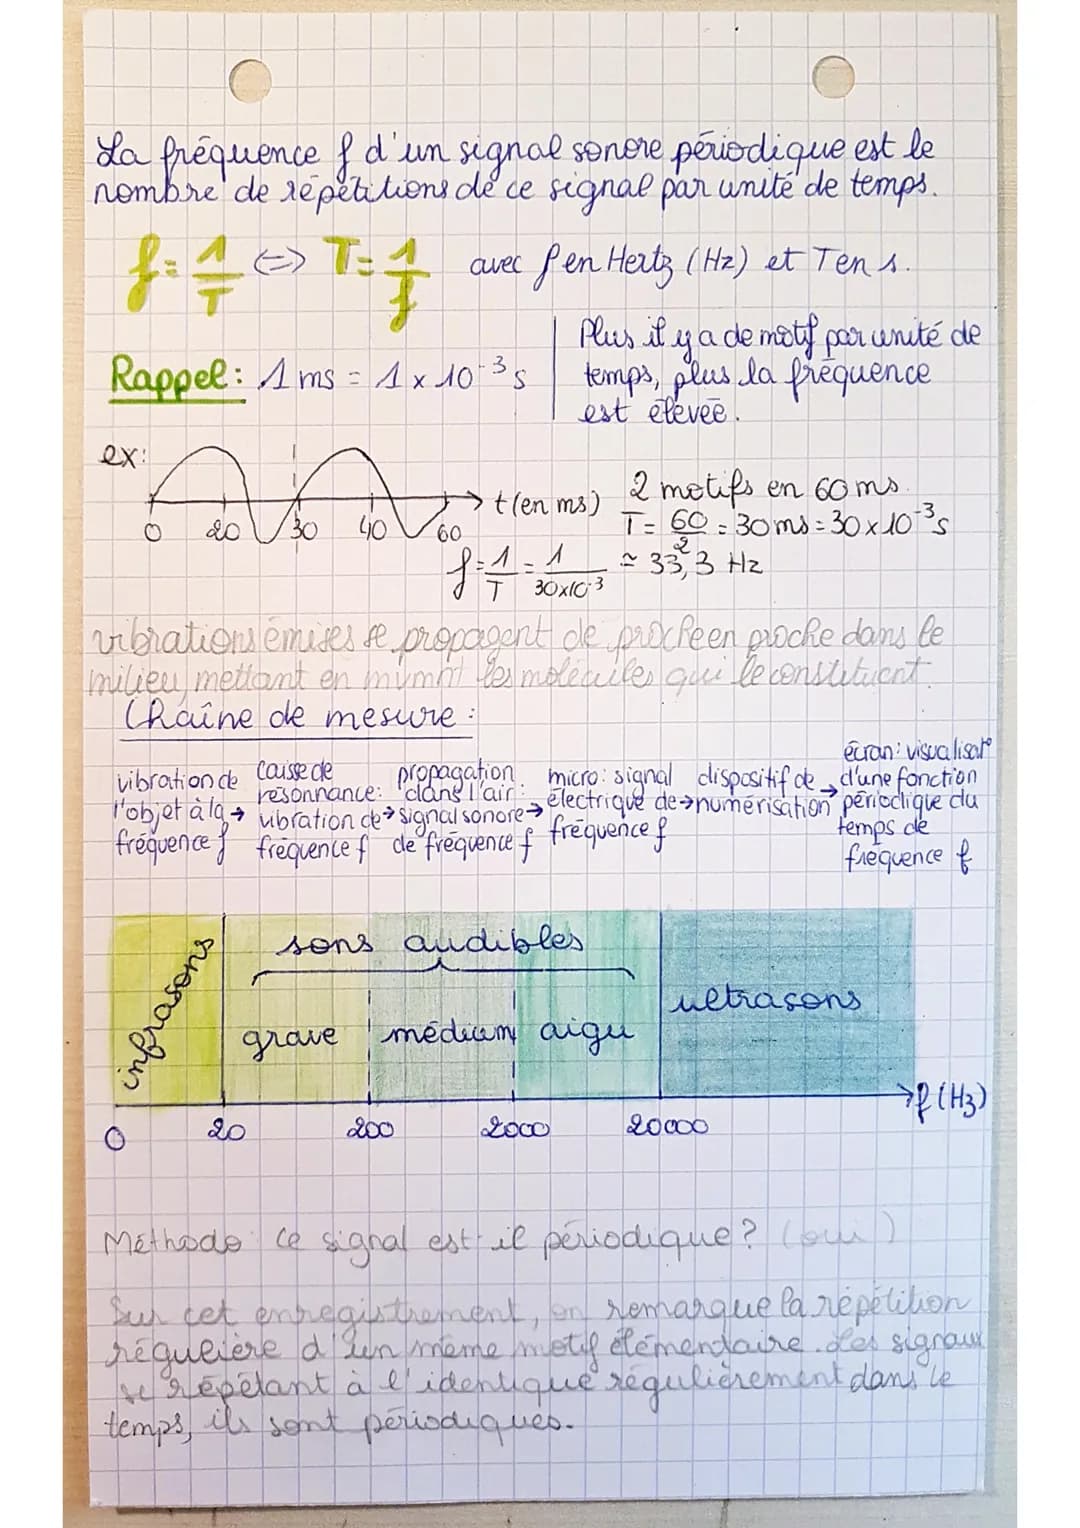 La fréquence f d'un signal sonore périodique est le
nombre de répétitions de ce signal par unité de temps.
f = 1/T <=> T = 1/f avec f en Hertz (Hz) et T en s.
Plus il y a de motif par unité de
temps, plus la fréquence
est élevée.
Rappel : 1 ms = 1 x 10^-3 s
ex:
0 20 30 40 60 t (en ms)
2 motifs en 60 ms.
T = 60/2 = 30 ms = 30 x 10^-3 s
f = 1/T = 1/30x10^-3 ≃ 33,3 Hz
vibrations émises se propagent de proche en proche dans le
milieu, mettant en mvmnt les molécules qui le constituent.
Chaîne de mesure :
vibration de
l'objet à la →
fréquence f
caisse de
résonnance:
vibration de →
fréquence f
propagation
dans l'air:
signal sonore →
de fréquence f
micro: signal
électrique de →
fréquence f
dispositif de →
numérisation
écran: visualisat°
d'une fonction
périodique du
temps de
fréquence f
infrasons
sons audibles
grave médium aigu
ultrasons
0 20 200 2000 20000 f (Hz)
Méthodo : Ce signal est-il périodique ? (oui)
Sur cet enregistrement, on remarque la répétition
régulière d'un même motif élémentaire. Les signaux
se répétant à l'identique régulièrement dans le
temps, ils sont périodiques.